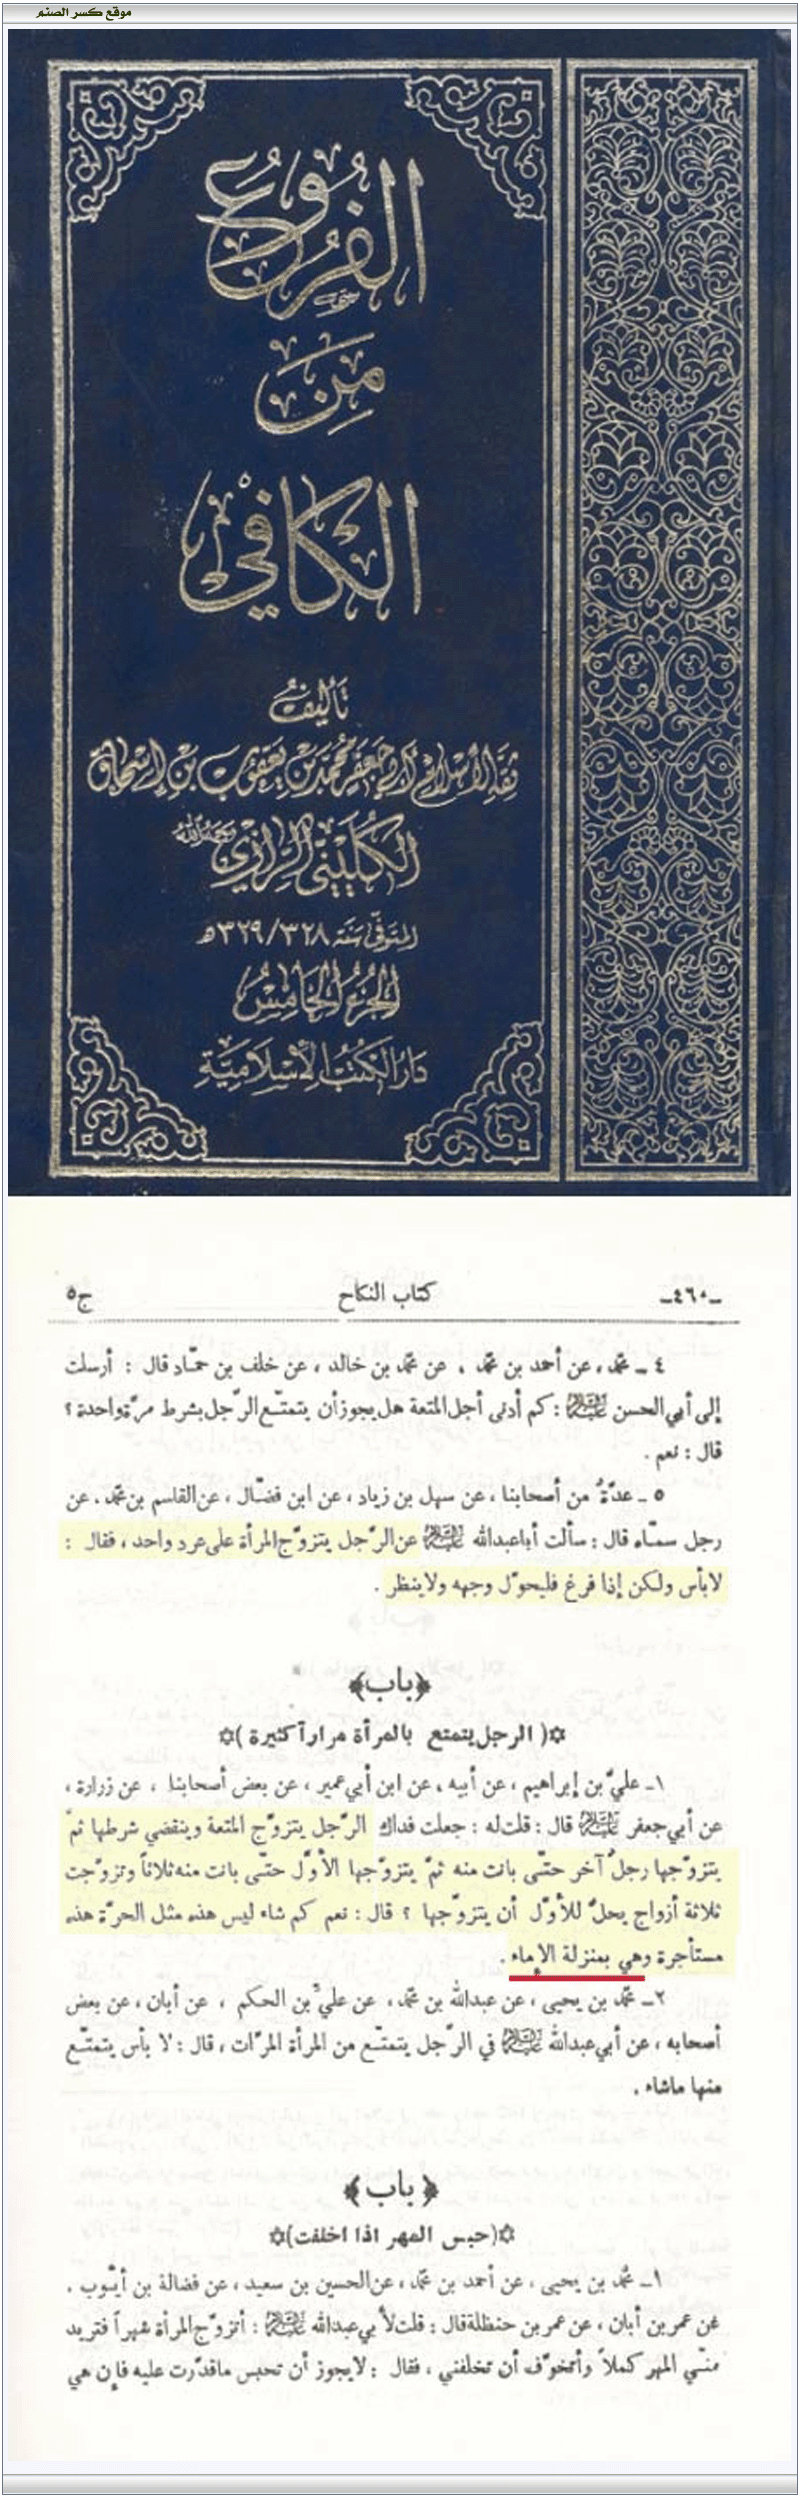 موقع كسر الصنم
الفروع
من
الكافي
تأليف
ثقة الإسلام أبي جعفر محمد بن يعقوب بن إسحاق
الكليني الرازي رحمه الله
المتوفى سنة ٣٢٨/٣٢٩ ه
الجزء الخامس
دار الكتب الإسلامية
ـ٤٦٠ـ كتاب النكاح ج٥
٤ ـ محمّد، عن أحمد بن محمّد، عن محمّد بن خالد، عن خلف بن حمّاد قال : أرسلت
إلى أبي الحسن عليه السلام : كم أدنى أجل المتعة هل يجوز أن يتمتّع الرّجل بشرط مرّة واحدة ؟
قال : نعم .
٥ ـ عدّةٌ من أصحابنا ، عن سهل بن زياد ، عن ابن فضّال ، عن القاسم بن محمّد ، عن
رجل سمّاه قال : سألت أباعبدالله عليه السلام عن الرّجل يتزوّج المرأة على عرد واحد ، فقال :
لا بأس ولكن إذا فرغ فليحوّل وجهه ولا ينظر .
﴿باب﴾
✡( الرجل يتمتع بالمرأة مراراً كثيرة )✡
١ـ عليُّ بن إبراهيم ، عن أبيه ، عن ابن أبي عمير ، عن بعض أصحابنا ، عن زرارة ،
عن أبي جعفر عليه السلام قال : قلت له : جعلت فداك الرّجل يتزوّج المتعة وينقضي شرطها ثمّ
يتزوّجها رجلٌ آخر حتّى بانت منه ثمّ يتزوّجها الأوّل حتّى بانت منه ثلاثاً وتزوّجت
ثلاثة أزواج يحلّ للأوّل أن يتزوّجها ؟ قال : نعم كم شاء ليس هذه مثل الحرّة هذه
مستأجرة وهي بمنزلة الإماء .
٢ـ محمّد بن يحيى ، عن عبدالله بن محمّد ، عن عليّ بن الحكم ، عن أبان ، عن بعض
أصحابه ، عن أبي عبدالله عليه السلام في الرّجل يتمتّع من المرأة المرّات ، قال : لا بأس يتمتّع
منها ماشاء .
﴿باب﴾
✡(حبس المهر اذا اخلفت)✡
١ـ محمّد بن يحيى ، عن أحمد بن محمّد ، عن الحسين بن سعيد ، عن فضالة بن أيّوب ،
عن عمر بن أبان ، عن عمر بن حنظلة قال : قلت لأبي عبدالله عليه السلام : أتزوّج المرأة شهراً فتريد
منّي المهر كملاً وأتخوّف أن تخلفني ، فقال : لا يجوز أن تحبس ما قدرت عليه فإن هي